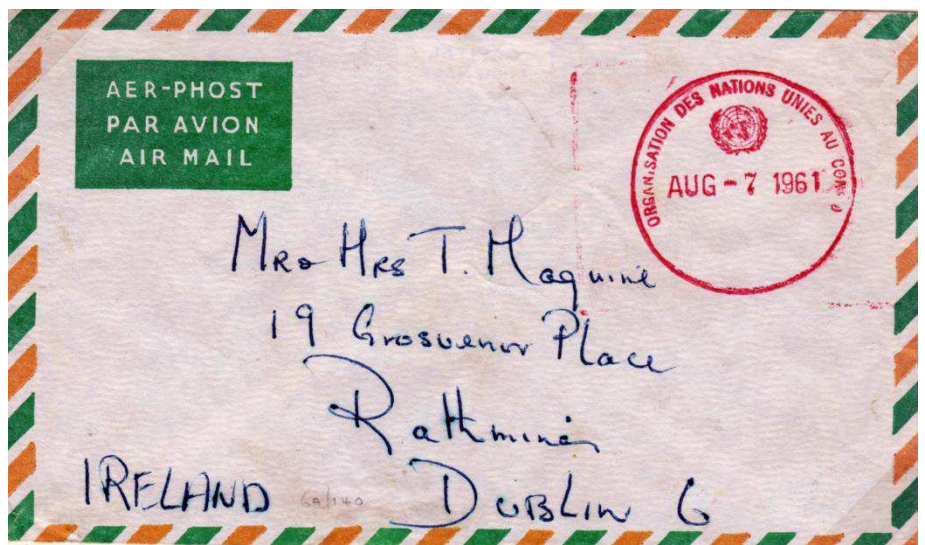 AER-PHOST
PAR AVION
AIR MAIL
ORGANISATION DES NATIONS UNIES AU CONGO
AUG - 7 1961
Mr & Mrs T. Maguire
19 Grosvenor Place
Rathmines
IRELAND
Dublin 6